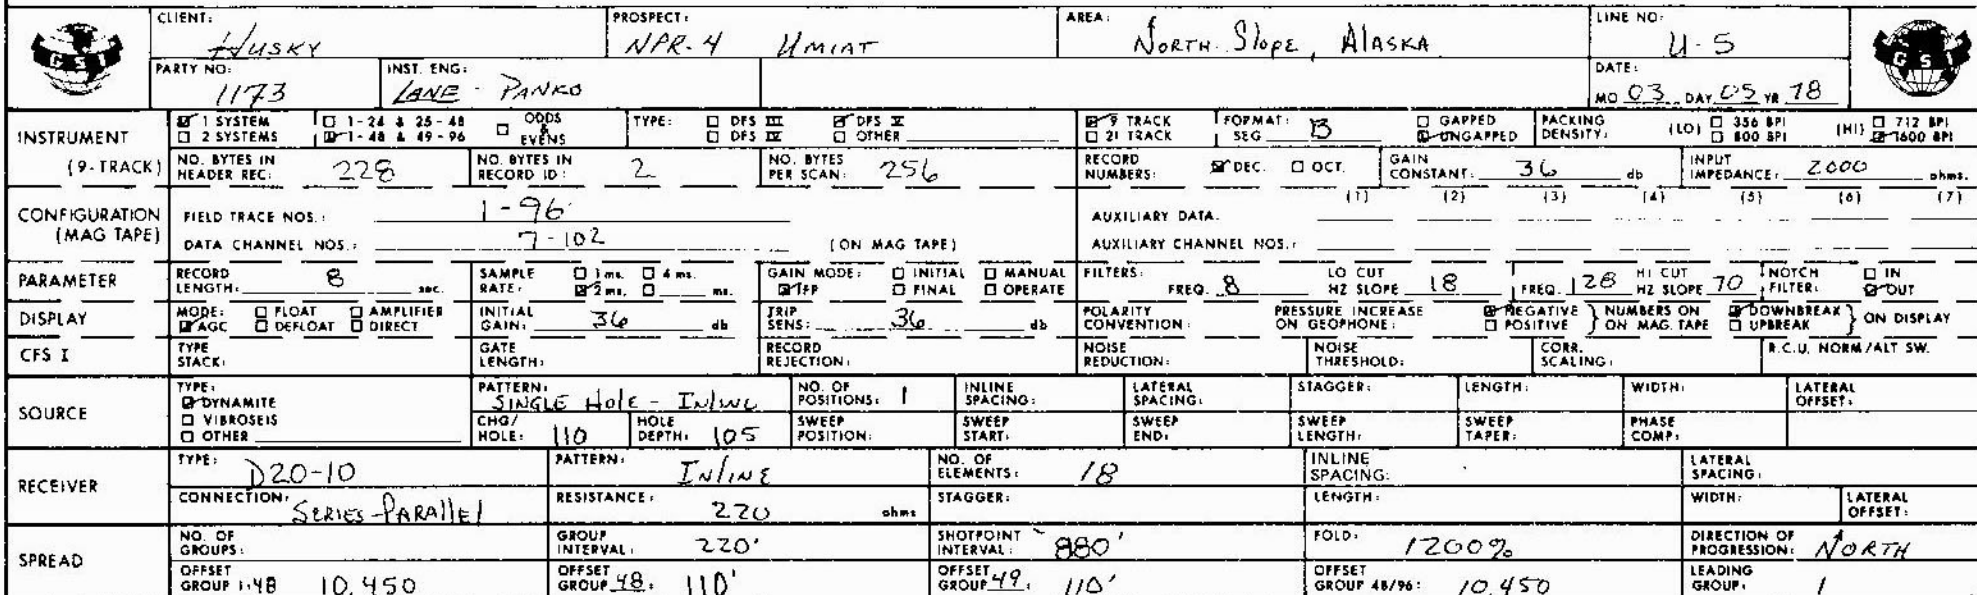 CLIENT: HUSKY PROSPECT: NPR-4 UMIAT AREA: NORTH SLOPE, ALASKA LINE NO: U-5
GSI GSI
PARTY NO: 1173 INST. ENG: LANE - PANKO DATE: MO 03 DAY 05 YR 78
INSTRUMENT (9-TRACK)
☑ 1 SYSTEM ☐ 1-24 & 25-48 ☐ ODDS & EVENS TYPE: ☐ DFS III ☑ DFS V ☑ 9 TRACK FORMAT: SEG B ☐ GAPPED PACKING DENSITY: (LO) ☐ 356 BPI (HI) ☐ 712 BPI
☐ 2 SYSTEMS ☑ 1-48 & 49-96 ☐ DFS IV ☐ OTHER ☐ 21 TRACK ☑ UNGAPPED ☐ 800 BPI ☑ 1600 BPI
NO. BYTES IN HEADER REC: 228 NO. BYTES IN RECORD ID: 2 NO. BYTES PER SCAN: 256 RECORD NUMBERS: ☑ DEC. ☐ OCT. GAIN CONSTANT: 36 db INPUT IMPEDANCE: 2000 ohms.
CONFIGURATION (MAG TAPE)
FIELD TRACE NOS.: 1-96 AUXILIARY DATA. (1) (2) (3) (4) (5) (6) (7)
DATA CHANNEL NOS.: 7-102 (ON MAG TAPE) AUXILIARY CHANNEL NOS.:
PARAMETER
RECORD LENGTH: 8 sec. SAMPLE RATE: ☐ 1 ms. ☐ 4 ms. ☑ 2 ms. ☐ ms. GAIN MODE: ☐ INITIAL ☐ MANUAL ☑ IFP ☐ FINAL ☐ OPERATE FILTERS: FREQ. 8 LO CUT HZ SLOPE 18 FREQ. 128 HI CUT HZ SLOPE 70 NOTCH FILTER: ☐ IN ☑ OUT
DISPLAY
MODE: ☐ FLOAT ☐ AMPLIFIER ☑ AGC ☐ DEFLOAT ☐ DIRECT INITIAL GAIN: 36 db TRIP SENS: 36 db POLARITY CONVENTION: PRESSURE INCREASE ON GEOPHONE: ☑ NEGATIVE ☐ POSITIVE } NUMBERS ON MAG. TAPE ☑ DOWNBREAK ☐ UPBREAK } ON DISPLAY
CFS I TYPE STACK: GATE LENGTH: RECORD REJECTION: NOISE REDUCTION: NOISE THRESHOLD: CORR. SCALING: R.C.U. NORM/ALT SW.
SOURCE
TYPE: ☑ DYNAMITE ☐ VIBROSEIS ☐ OTHER PATTERN: SINGLE HOLE - INLINE NO. OF POSITIONS: 1 INLINE SPACING: LATERAL SPACING: STAGGER: LENGTH: WIDTH: LATERAL OFFSET:
CHG/HOLE: 110 HOLE DEPTH: 105 SWEEP POSITION: SWEEP START: SWEEP END: SWEEP LENGTH: SWEEP TAPER: PHASE COMP:
RECEIVER
TYPE: D20-10 PATTERN: INLINE NO. OF ELEMENTS: 18 INLINE SPACING: LATERAL SPACING:
CONNECTION: SERIES-PARALLEL RESISTANCE: 220 ohms STAGGER: LENGTH: WIDTH: LATERAL OFFSET:
SPREAD
NO. OF GROUPS: GROUP INTERVAL: 220' SHOTPOINT INTERVAL: 880' FOLD: 1200% DIRECTION OF PROGRESSION: NORTH
OFFSET GROUP 1-48 10,450 OFFSET GROUP 48: 110' OFFSET GROUP 49: 110' OFFSET GROUP 48/96: 10,450 LEADING GROUP: 1